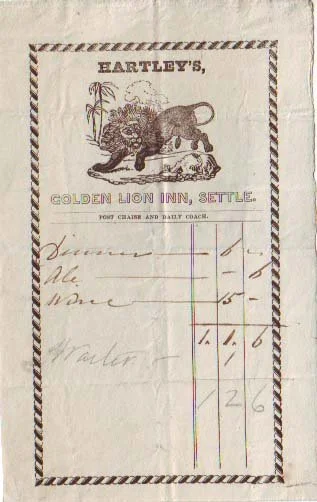 HARTLEY'S,
GOLDEN LION INN, SETTLE.
POST CHAISE AND DAILY COACH.
Dinner — 6 -
Ale — - 6
Wine — 15 -
1. 1. 6
Waiter - 1
1 2 6